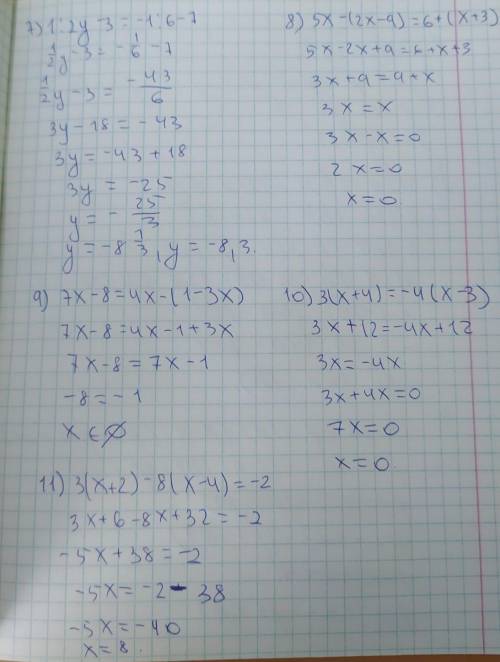 7) 1:2y-3=-1:6-7
1/2y-3=-1/6-7
1/2y-3=-43/6
3y-18=-43
3y=-43+18
3y=-25
y=-25/3
y=-8 1/3, y=-8,3.
8) 5x-(2x-9)=6+(x+3)
5x-2x+9=6+x+3
3x+9=9+x
3x=x
3x-x=0
2x=0
x=0
9) 7x-8=4x-(1-3x)
7x-8=4x-1+3x
7x-8=7x-1
-8=-1
x∈∅
10) 3(x+4)=-4(x-3)
3x+12=-4x+12
3x=-4x
3x+4x=0
7x=0
x=0
11) 3(x+2)-8(x-4)=-2
3x+6-8x+32=-2
-5x+38=-2
-5x=-2-38
-5x=-40
x=8.